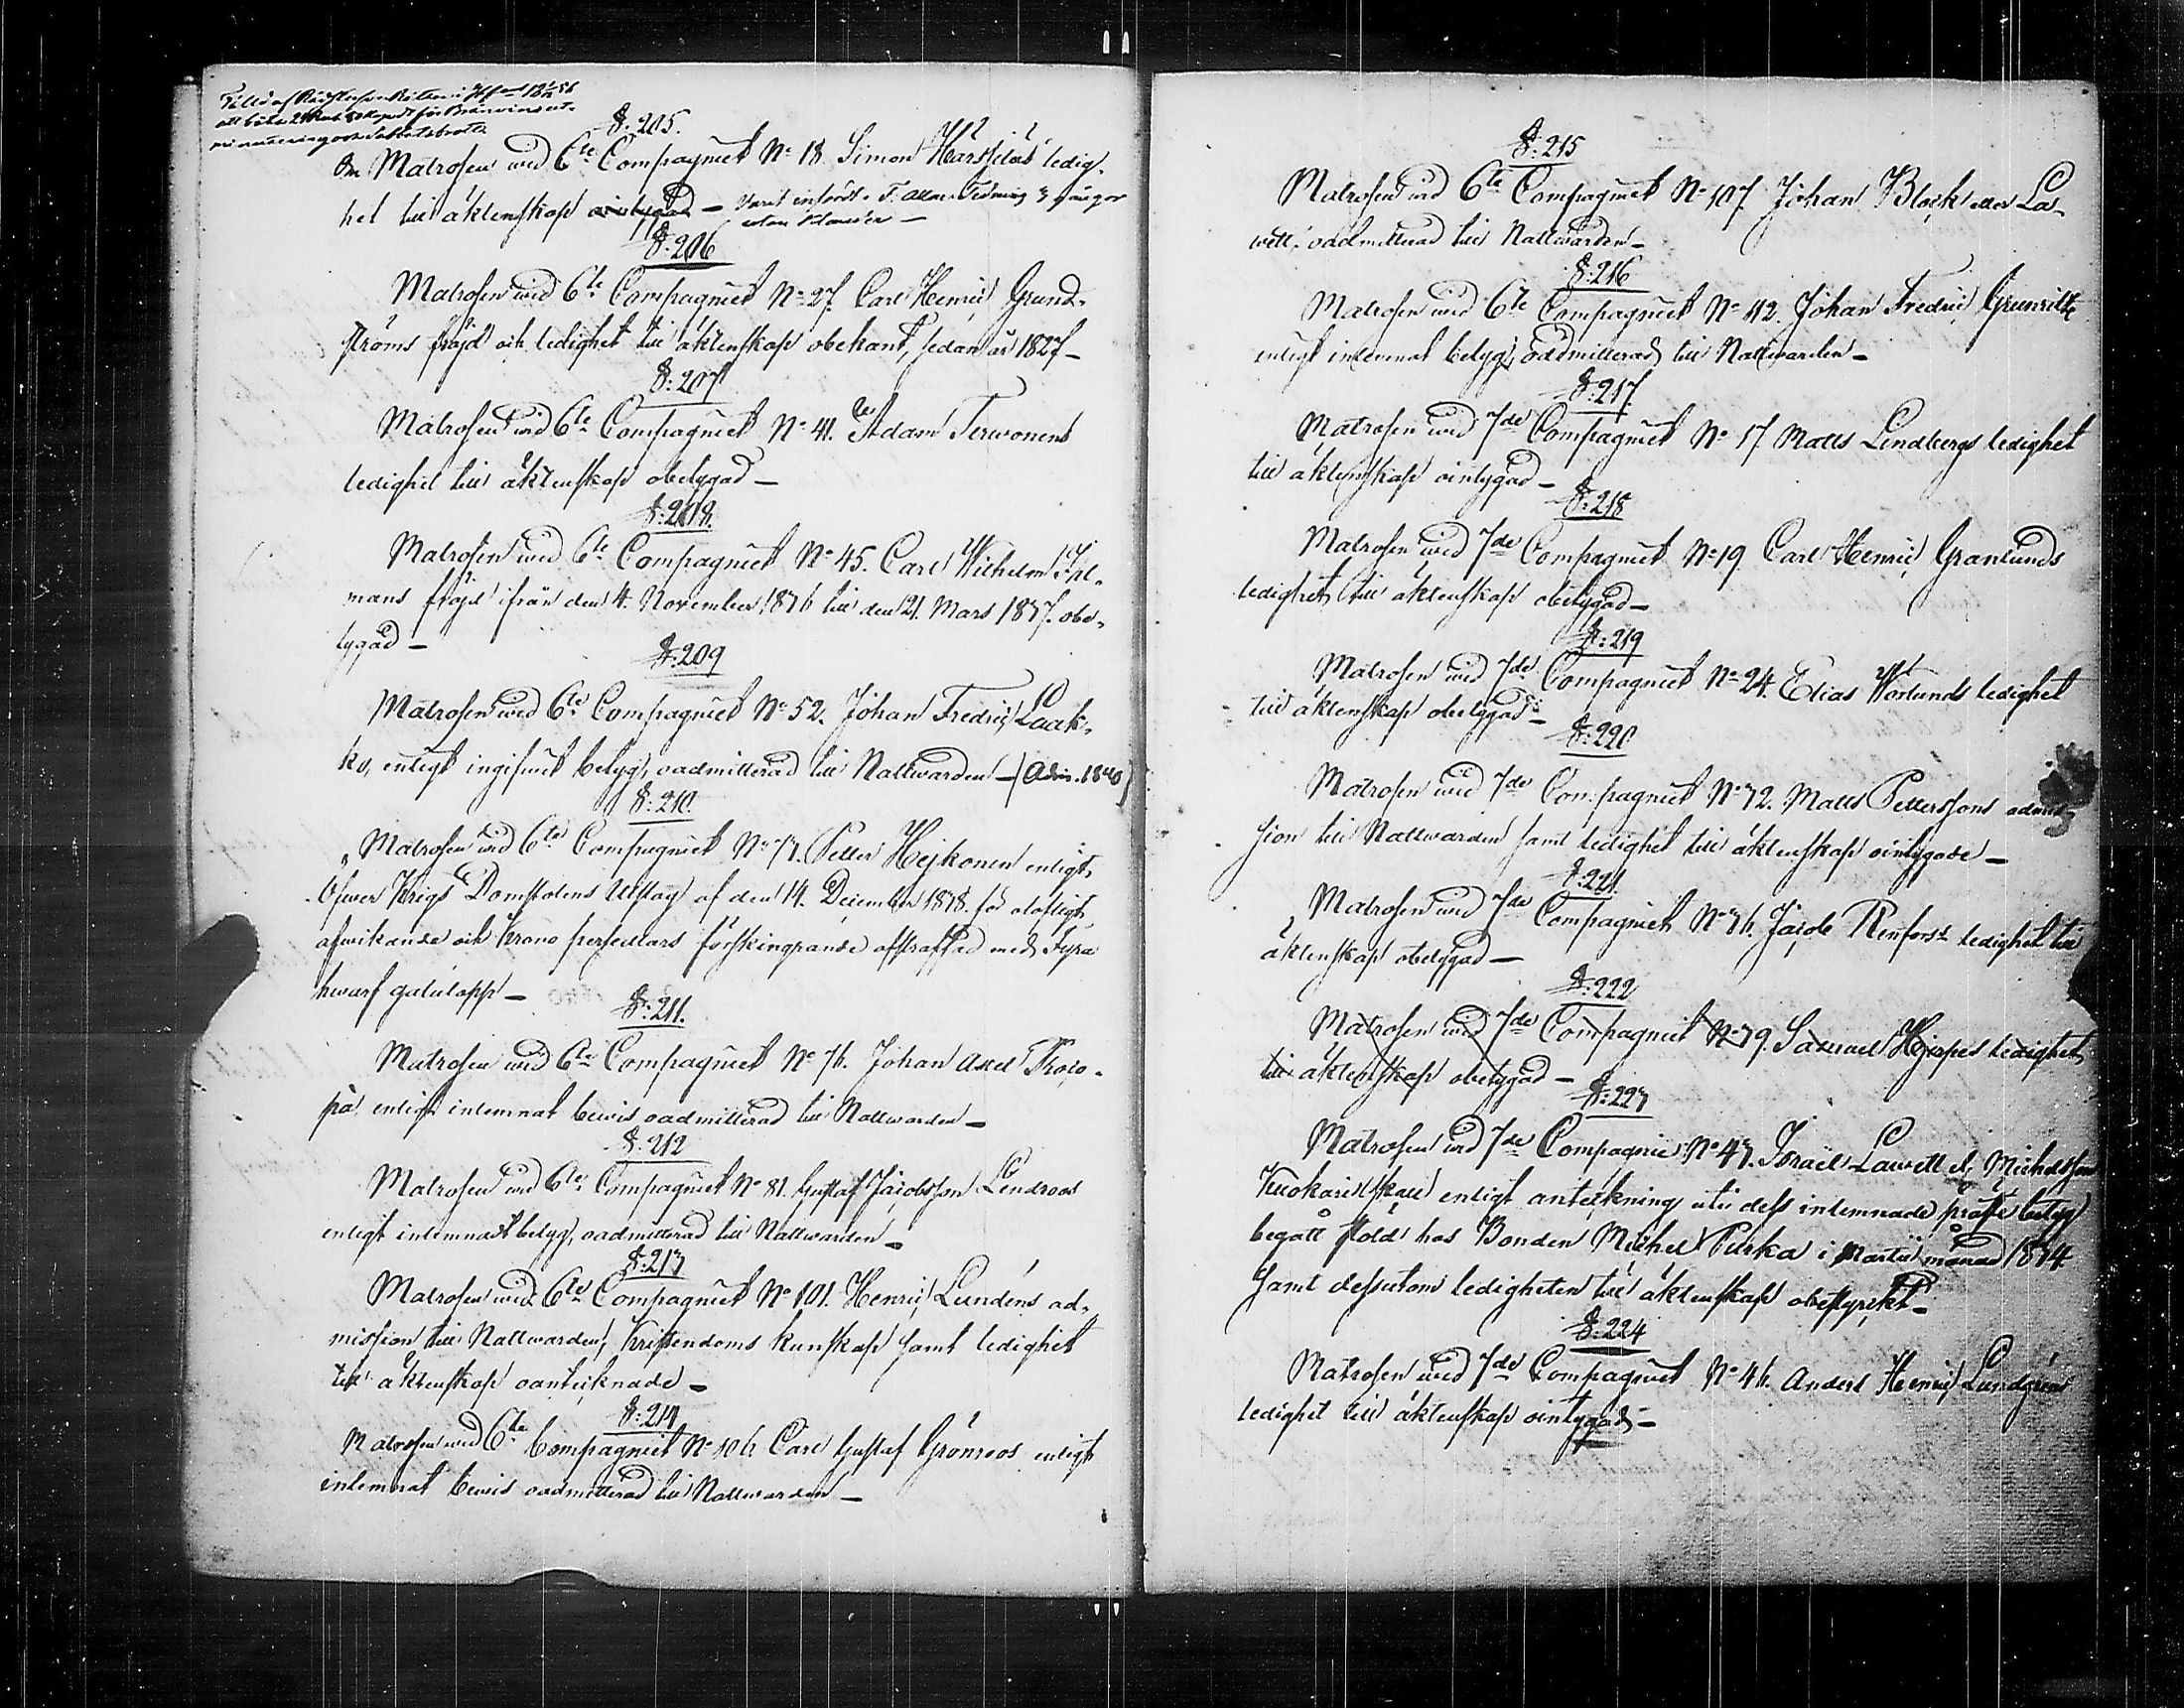 att böta 24 Rub
§: 205.
Matrosen wid 6te Compagniet No 18. Simon ledig-
het till äktenskap ointygad — warit införd i F. Allm. Tidning 3 gånger
utan klander —
§: 206
Matrosen wid 6te Compagniet No 27. Carl Henric Grund-
ströms fräjd och ledighet till äktenskap obekant, sedan år 1827 —
§: 207
Matrosen wid 6te Compagniet No 41. Adam Terwonens
ledighet till äktenskap obetygad —
§: 208.
Matrosen wid 6te Compagniet No 45. Carl Wilhelm
mans fräjd ifrån den 4. November 1836 till den 21. Mars 1837. obe-
tygad —
§: 209
Matrosen wid 6te Compagniet No 52. Johan Fredric Laak-
ko, enligt ingifwit betyg, oadmitterad till Nattwarden — (Adm. 1840)
§: 210.
Matrosen wid 6te Compagniet No 73. Petter Hejkonen enligt
Öfwer Krigs Domstolens Utslag af den 14. December 1838. för olofligt
afwikande och Krono persedlars förskingrande afstraffad med Fyra
hwarf gatulopp —
§: 211.
Matrosen wid 6te Compagniet No 76. Johan Axel
på enligt inlemnat bewis oadmitterad till Nattwarden —
§: 212
Matrosen wid 6te Compagniet No 81. Gustaf Jacobsson Lindroos
enligt inlemnadt betyg, oadmitterad till Nattwarden —
§: 213
Matrosen wid 6te Compagniet No 101. Henric Lundéns ad-
mission till Nattwarden, Kristendoms kunskap samt ledighet
till äktenskap oantecknade —
§: 214
Matrosen wid 6te Compagniet No 106. Carl Gustaf Grönroos enligt
inlemnat bewis oadmitterad till Nattwarden —
§: 215
Matrosen wid 6te Compagniet No 107. Johan Block eller La-
wett, oadmitterad till Nattwarden —
§: 216
Matrosen wid 6te Compagniet No 112. Johan Fredric
enligt inlemnat betyg, oadmitterad till Nattwarden —
§: 217.
Matrosen wid 7de Compagniet No 17. Matts Lindbergs ledighet
till äktenskap ointygad —
§: 218
Matrosen wid 7de Compagniet No 19. Carl Henric Granlunds
ledighet till äktenskap obetygad —
§: 219
Matrosen wid 7de Compagniet No 24. Elias Worlunds ledighet
till äktenskap obetygad —
§: 220
Matrosen wid 7de Compagniet No 32. Matts Petterssons admis-
sion till Nattwarden samt ledighet till äktenskap ointygade —
§: 221.
Matrosen wid 7de Compagniet No 36. Jacob Renforss ledighet till
äktenskap obetygad —
§: 222
Matrosen wid 7de Compagniet No 39. Samuel Hjerpes ledighet
till äktenskap obetygad —
§: 223
Matrosen wid 7de Compagnie No 43. Israel Lawett el. Michelsson
Kuokari skall enligt anteckning uti dess inlemnade präste betyg
begått stöld hos Bonden Michel Purka i Martii månad 1834
samt dessutom ledigheten till äktenskap obestyrkt —
§: 224
Matrosen wid 7de Compagniet No 46. Anders Henric Lundgréns
ledighet till äktenskap ointygad —